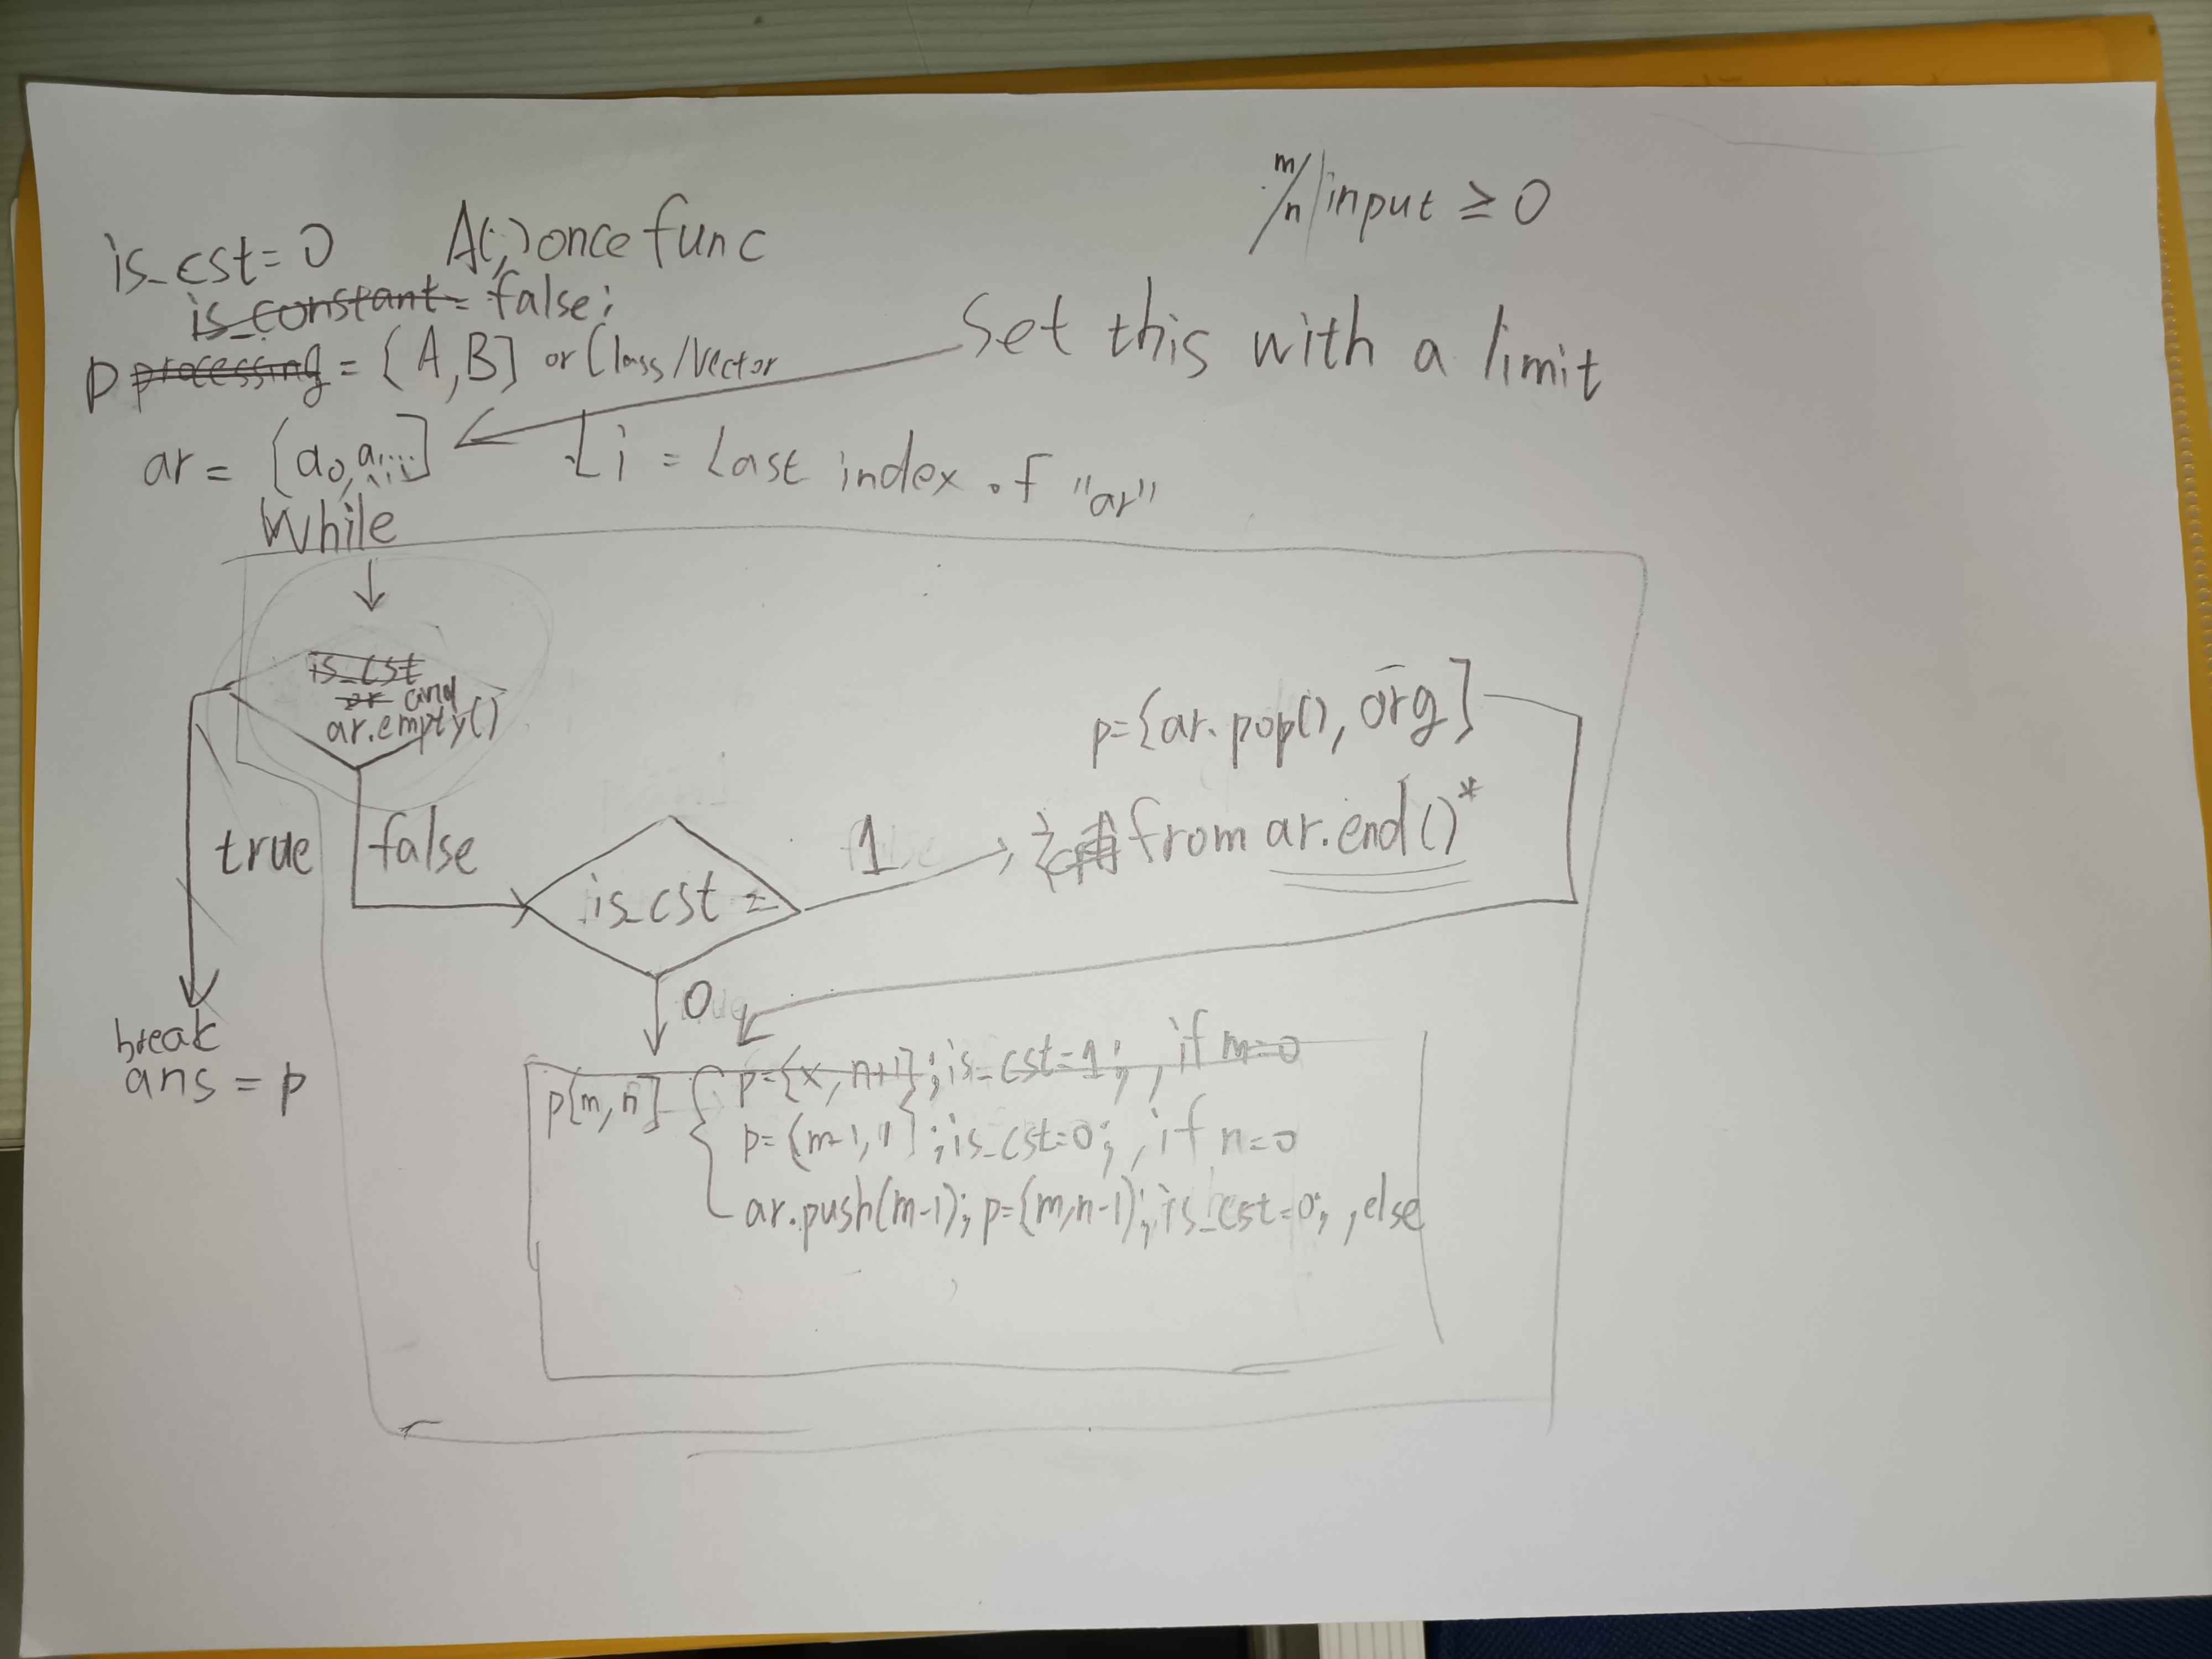 m/n input ≥ 0
is_cst = 0 A(,) once func
is_constant = false;
p processing = {A,B] or Class/Vector
Set this with a limit
ar = [a0,a1...]
Li = Last index of "ar"
While
is_cst
or and
ar.empty()
true
false
break
ans = p
is_cst =
1
0
p={ar.pop(), org]
from ar.end()*
p[m,n]
p={x,n+1};is_cst=1;, if m=0
p={m-1,1];is_cst=0;, if n=0
ar.push(m-1); p={m,n-1);is_cst=0;, else